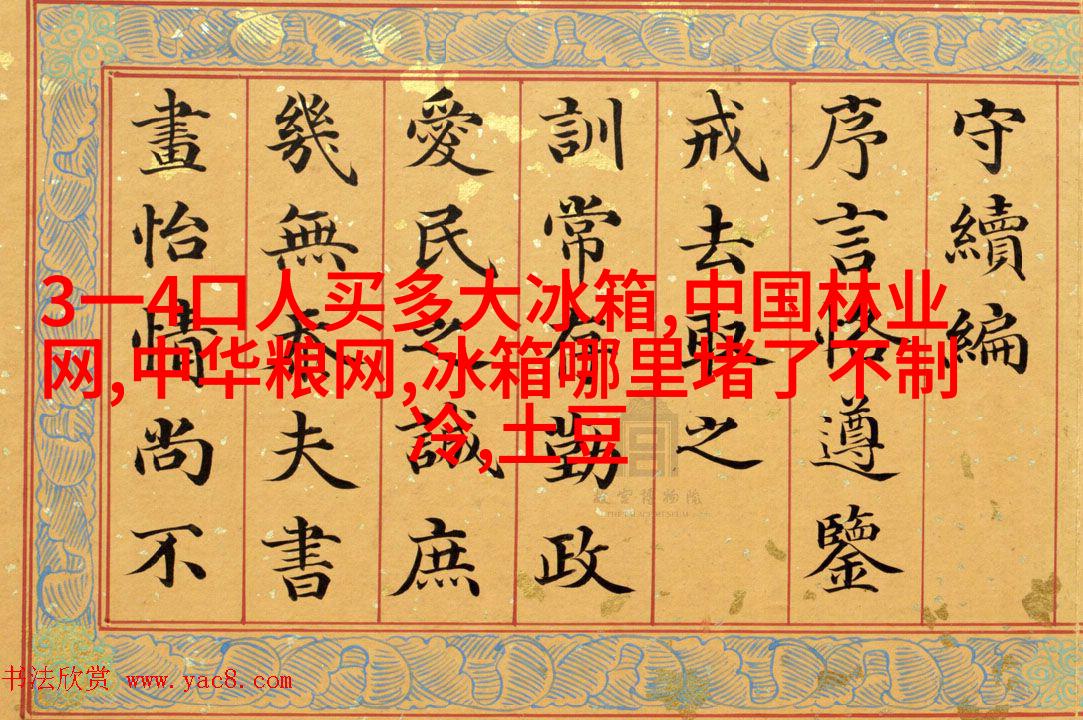 守續編
序言恪遵鑒
戒去取之
訓常有勤政
愛民之誠庶
幾無忝夫書
畫怡情尚不
3一4口人买多大冰箱,中国林业
网,中华粮网,冰箱哪里堵了不制
冷,土豆
故宫博物院
THE PALACE MUSEUM
书法欣赏 www.yac8.com